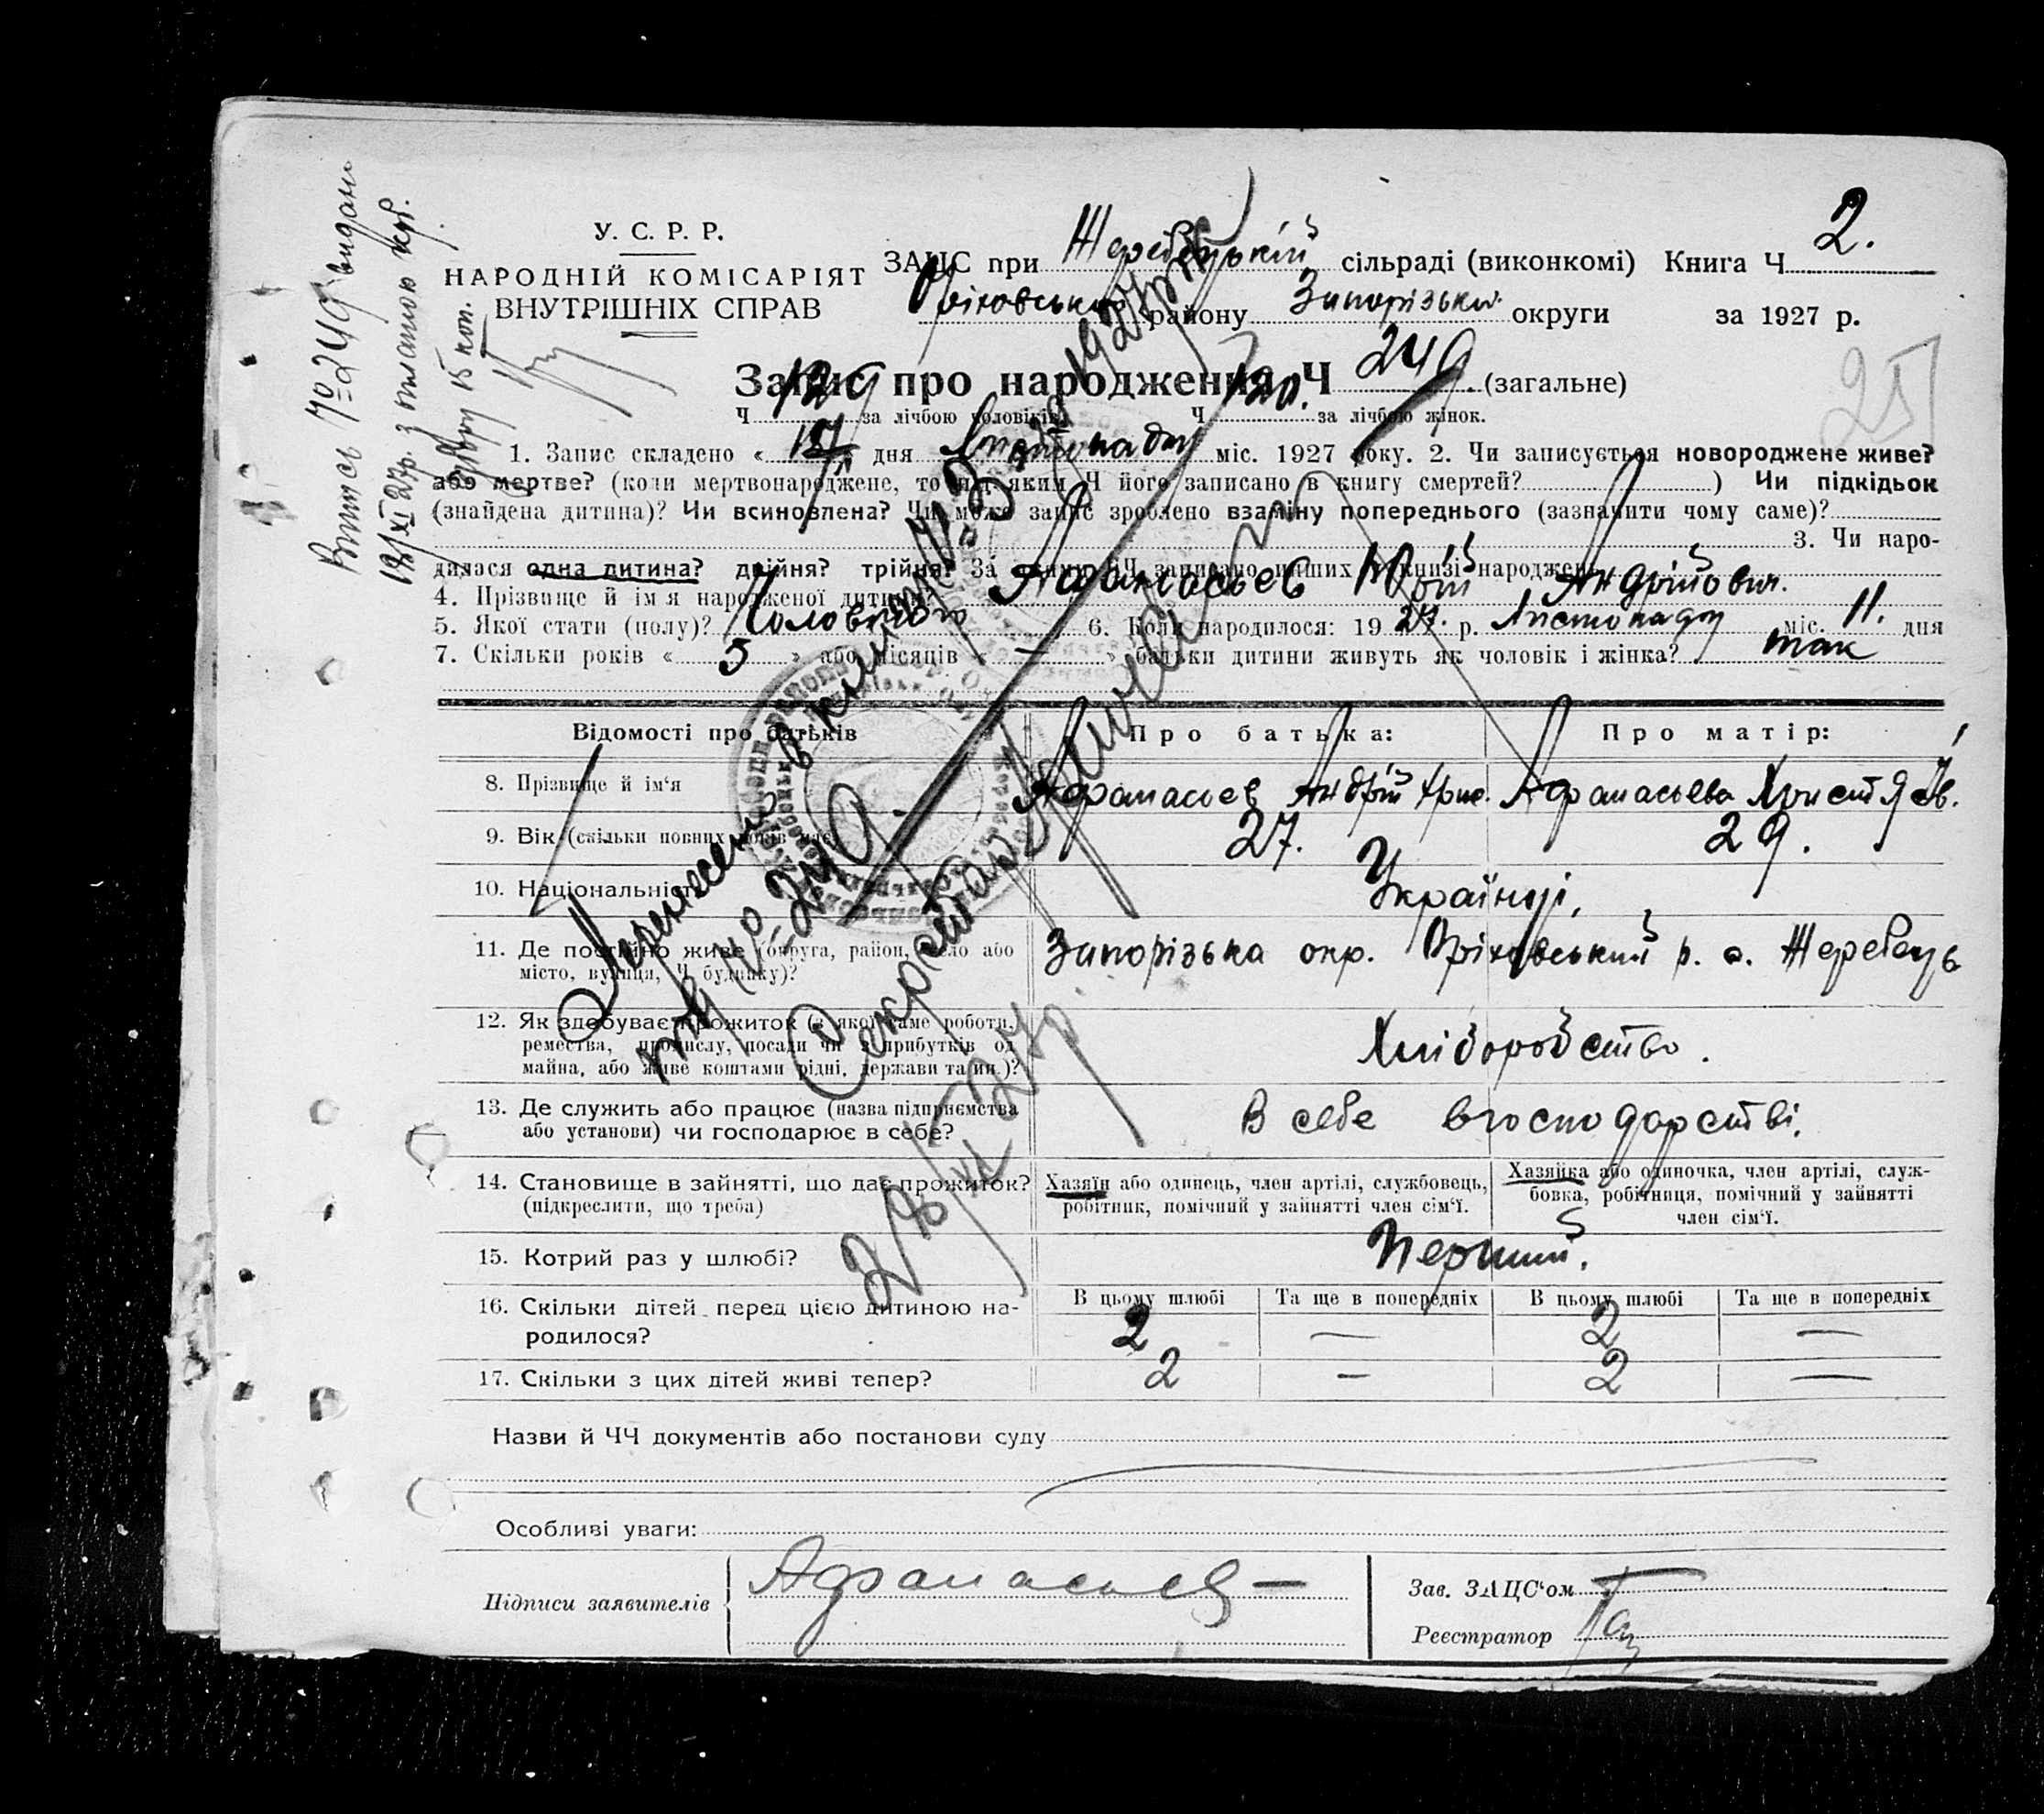 У. С. Р. Р.
НАРОДНІЙ КОМІСАРІЯТ
ВНУТРІШНІХ СПРАВ
ЗАЦС при Жеребецькій сільраді (виконкомі) Книга Ч 2.
Оріховський району Запорізька округи за 1927 р.
Запис про народження Ч 249 (загальне)
Ч 129 за лічбою чоловіків Ч 120. за лічбою жінок.
1. Запис складено « » дня Листопада міс. 1927 року. 2. Чи записується новороджене живе?
або мертве? (коли мертвонароджене, то під яким Ч його записано в книгу смертей? ) Чи підкідьок
(знайдена дитина)? Чи всиновлена? Чи може запис зроблено взаміну попереднього (зазначити чому саме)?
3. Чи наро-
дилася одна дитина? двійня? трійня? За ЧЧ записано инших в книзі народжень
4. Прізвище й ім'я народженої дитини? Афанасьев Юрій Андрійович.
5. Якої стати (полу)? Чоловічого 6. Коли народилося: 1927. р. Листопаду міс. 11. дня
7. Скільки років « 5 » або місяців « — » батьки дитини живуть як чоловік і жінка? так
Відомості про батьків Про батька: Про матір:
8. Прізвище й ім'я Афанасьев Андрій Афанасьева Христя Ів.
9. Вік (скільки повних років має) 27. 29.
10. Національність Українці,
11. Де постійно живе (округа, район, село або Запорізька окр. Оріховський р. с. Жеребець
місто, вулиця, Ч будинку)?
12. Як здобуває прожиток (з якої саме роботи, Хліборобство.
ремества, промислу, посади чи з прибутків од
майна, або живе коштами рідні, держави та ин.)?
13. Де служить або працює (назва підприємства В себе в господарстві.
або установи) чи господарює в себе?
14. Становище в зайнятті, що дає прожиток? Хазяїн або одинець, член артілі, службовець, Хазяйка або одиночка, член артілі, служ-
(підкреслити, що треба) робітник, помічний у зайнятті член сім'ї. бовка, робітниця, помічний у зайнятті
член сім'ї.
15. Котрий раз у шлюбі? Перший.
16. Скільки дітей перед цією дитиною на- В цьому шлюбі Та ще в попередніх В цьому шлюбі Та ще в попередніх
родилося? 2 — 2 —
17. Скільки з цих дітей живі тепер? 2 — 2 —
Назви й ЧЧ документів або постанови суду
Особливі уваги:
Підписи заявителів Афанасьев
Зав. ЗАЦС'ом
Реєстратор
Випись № 249 видана
18/XI 27р. з платою
15 коп.
249.
Секретар
28/XI 27р.
251